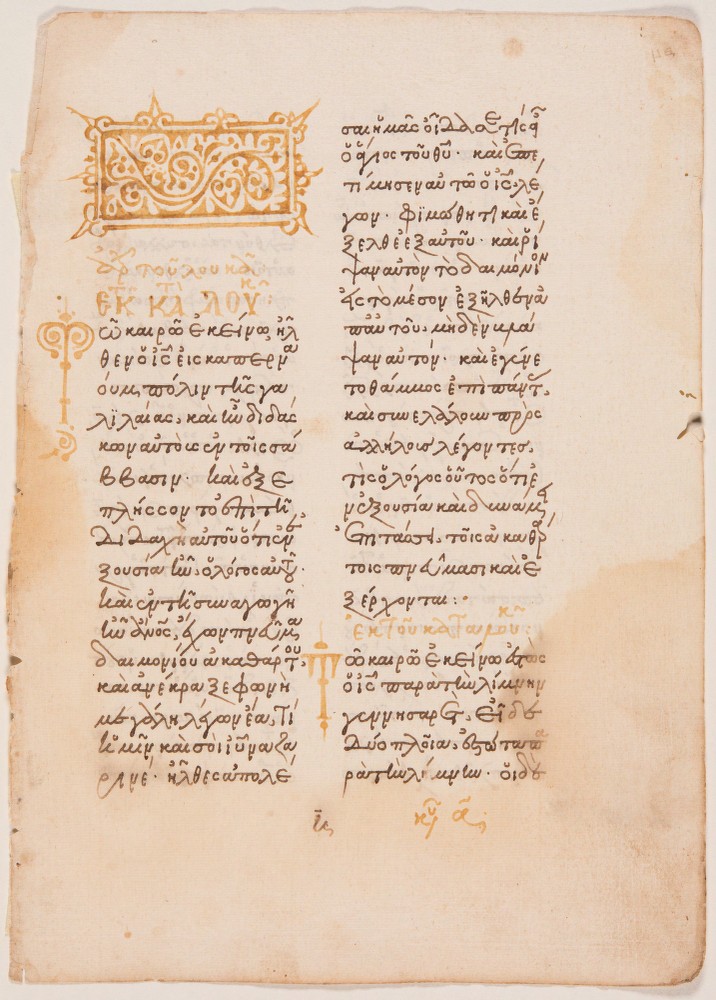 ΕΚ Τ ΚΑΤΑ ΛΟΥΚ:
Τῶ καιρῶ ἐκείνω, ἦλ
θεν ὁ ι̅ς̅ εἰς καπερνα
ούμ, πόλιν τῆς γα
λϊλαίας, καὶ ἦν διδάσ
κων αὐτοὺς ἐν τοῖς σά
ββασιν· καὶ ἐξε
πλήσσοντο ἐπὶ τῆ
διδαχῆ αὐτοῦ ὅτι ἐν ἐ
ξουσία ἦν, ὁ λόγος αὐτοῦ·
καὶ ἐν τῆ συναγωγῆ
ἦν ἄνος, ἔχων πνεῦμα
δαιμονίου ἀκαθάρτου,
καὶ ἀνέκραξε φωνὴ
μεγάλη, λέγων ἔα, τί
ἡμῖν καὶ σοὶ ι̅υ̅ ναζα
ρινέ· ἦλθες ἀπολέ
σαι ἡμᾶς· οἶδά σε τίς εἶ
ὁ ἅγιος τοῦ θυ̅· καὶ ἐπε
τίμησεν αὐτῶ ὁ ι̅ς̅, λέ
γων· φϊμώθητι καὶ ἔ
ξελθε ἐξ αὐτοῦ· καὶ ῥί
ψαν αὐτὸν τὸ δαιμόνιον
εἰς τὸ μέσον ἐξῆλθεν ἀ
π' αὐτοῦ, μηδὲν κρά
ψαν αὐτόν· καὶ ἐγένε
το θάμβος ἐπὶ πάντας,
καὶ συνελάλουν πρὸς
ἀλλήλους λέγοντες,
τίς ὁ λόγος οὗτος ὅτι ἐ
ν ἐξουσία καὶ δυνάμει
ἐπιτάσσει, τοῖς ἀκαθάρ
τοις πνεύμασι καὶ ἐ
ξέρχονται:
ἐκ τοῦ κατὰ λουκ:
Τῶ καιρῶ ἐκείνω ἑστὼς
ὁ ι̅ς̅ παρὰ τὴν λίμνην
γεννησαρέτ, εἶδε
δύο πλοῖα, ἑστῶτα πα
ρὰ τὴν λίμνην· οἱ δὲ
κυ α